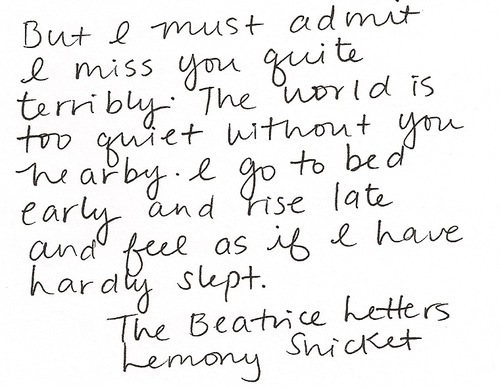 But I must admit
I miss you quite
terribly. The world is
too quiet without you
nearby. I go to bed
early and rise late
and feel as if I have
hardly slept.
The Beatrice Letters
Lemony Snicket